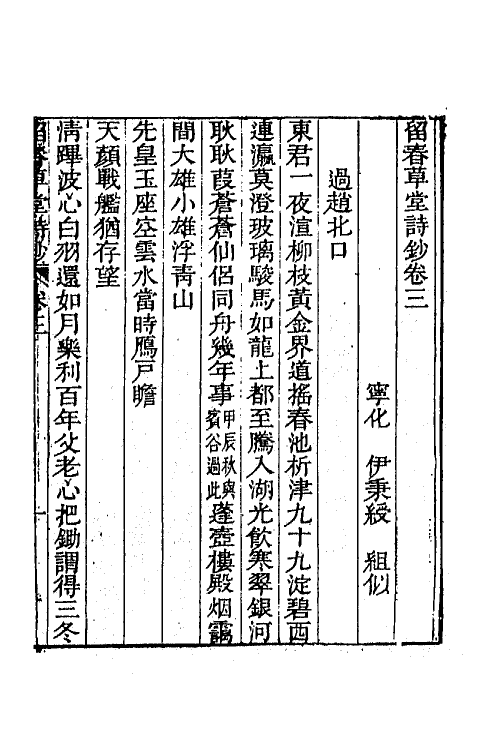 留春草堂詩鈔卷三
寧化　伊秉綬　組似
過趙北口
東君一夜渲柳枝黃金界道搖春池析津九十九淀碧西
連瀛莫澄玻璃駿馬如龍上都至騰入湖光飲寒翠銀河
耿耿葭蒼蒼仙侶同舟幾年事甲辰秋與賓谷過此蓬壺樓殿烟靄
間大雄小雄浮靑山
先皇玉座空雲水當時鴈戸瞻
天顏戰艦猶存望
淸蹕波心白羽還如月樂利百年父老心把鋤謂得三冬
留春草堂詩鈔　卷三　一